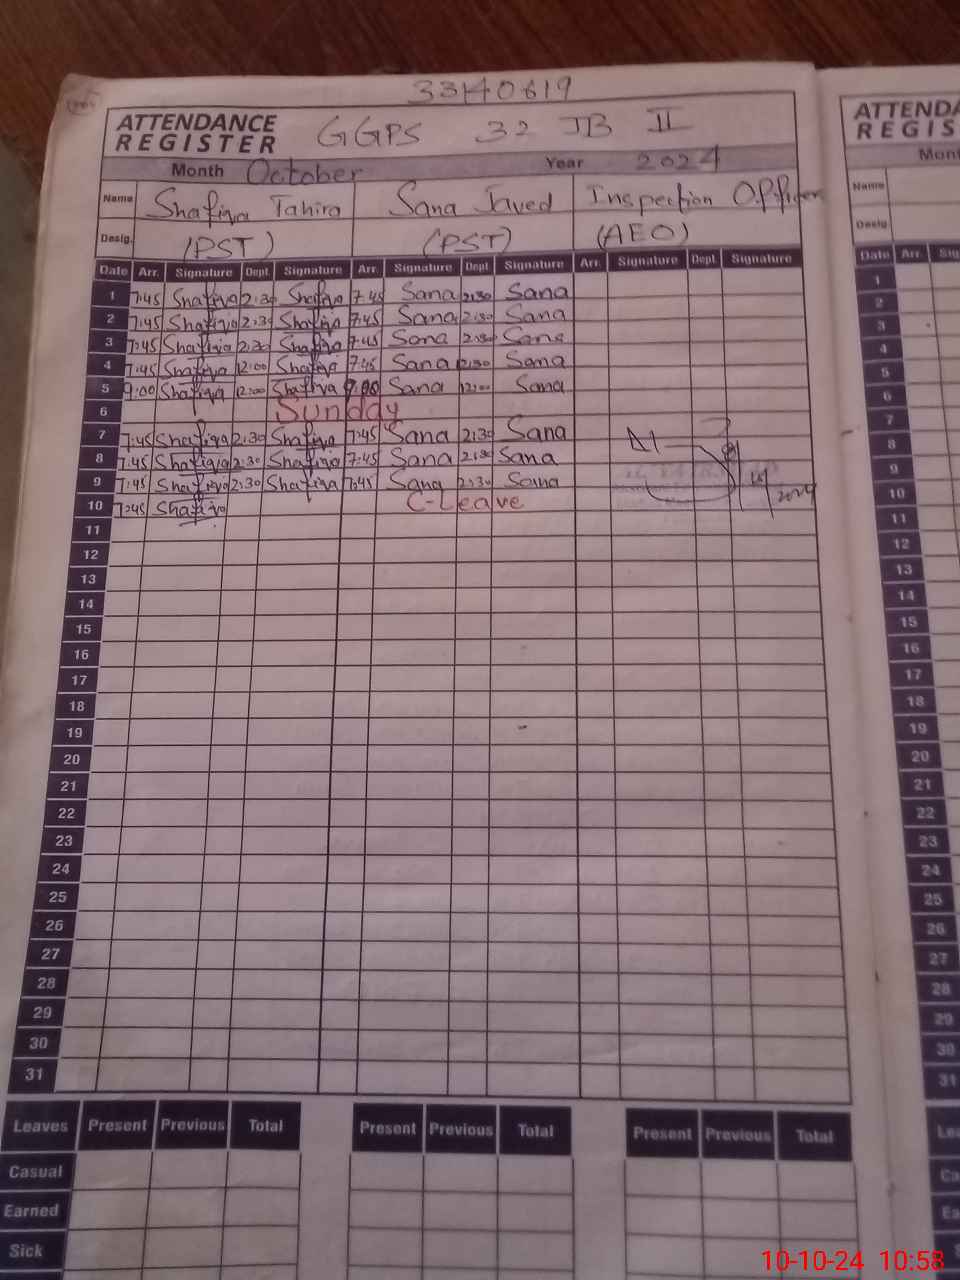 33140619
ATTENDANCE REGISTER GGPS 32 JB II
Month October Year 2024
Name Shafiqa Tahira Sana Javed Inspection Officer
Desig. (PST) (PST) (AEO)
Date Arr. Signature Dept. Signature Arr. Signature Dept Signature Arr. Signature Dept. Signature
1 7:45 Shafiqa 2:30 Shafiqa 7:45 Sana 2:30 Sana
2 7:45 Shafiqa 2:30 Shafiqa 7:45 Sana 2:30 Sana
3 7:45 Shafiqa 2:30 Shafiqa 7:45 Sana 2:30 Sana
4 7:45 Shafiqa 12:00 Shafiqa 7:45 Sana 12:00 Sana
5 9:00 Shafiqa 12:00 Shafiqa 9:00 Sana 12:00 Sana
6 Sunday
7 7:45 Shafiqa 2:30 Shafiqa 7:45 Sana 2:30 Sana
8 7:45 Shafiqa 2:30 Shafiqa 7:45 Sana 2:30 Sana
9 7:45 Shafiqa 2:30 Shafiqa 7:45 Sana 2:30 Sana
10 7:45 Shafiqa C-Leave 2024
11
12
13
14
15
16
17
18
19
20
21
22
23
24
25
26
27
28
29
30
31
Leaves Present Previous Total Present Previous Total Present Previous Total
Casual
Earned
Sick
ATTENDA
REGIS
Mont
Name
Desig.
Date Arr. Sig
1
2
3
4
5
6
7
8
9
10
11
12
13
14
15
16
17
18
19
20
21
22
23
24
25
26
27
28
29
30
31
Lea
Ca
Ea
S
10-10-24 10:58